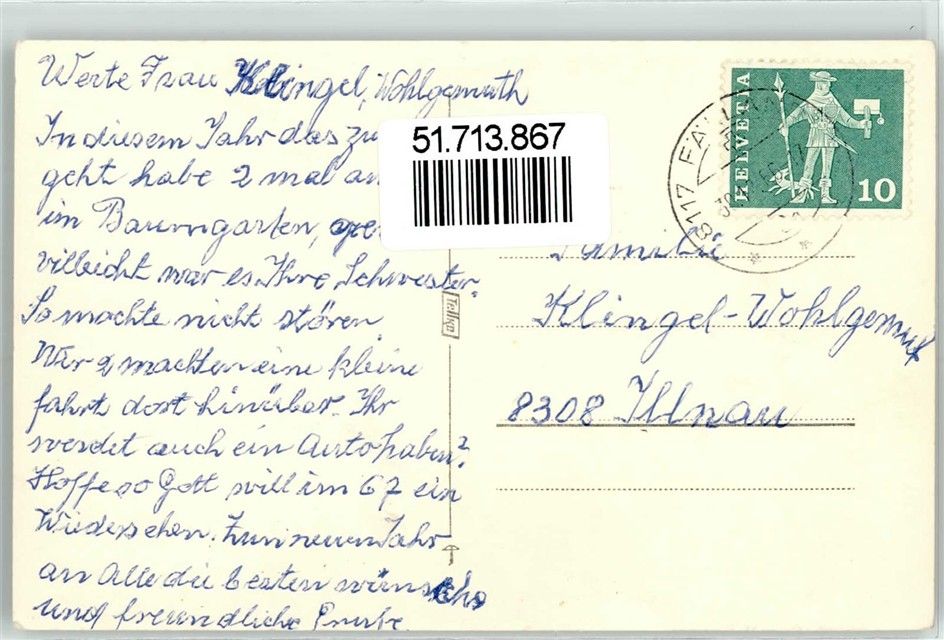 Werte Frau Klingel, Wohlgemuth
In diesem Jahr das zu
geht habe 2 mal an
im Baumgarten,
villeicht war es Ihre Schwester.
So mochte nicht stören
Wir 2 machten eine kleine
fahrt dort hinüber. Ihr
werdet auch ein Auto haben?
Hoffe so Gott will im 67 ein
Wiedersehen. Zum neuen Jahr
an Alle die besten wünsche
und freundliche Grüsse
51.713.867
Tellko
HELVETIA
10
8117
Familie
Klingel-Wohlgemut
8308 Illnau